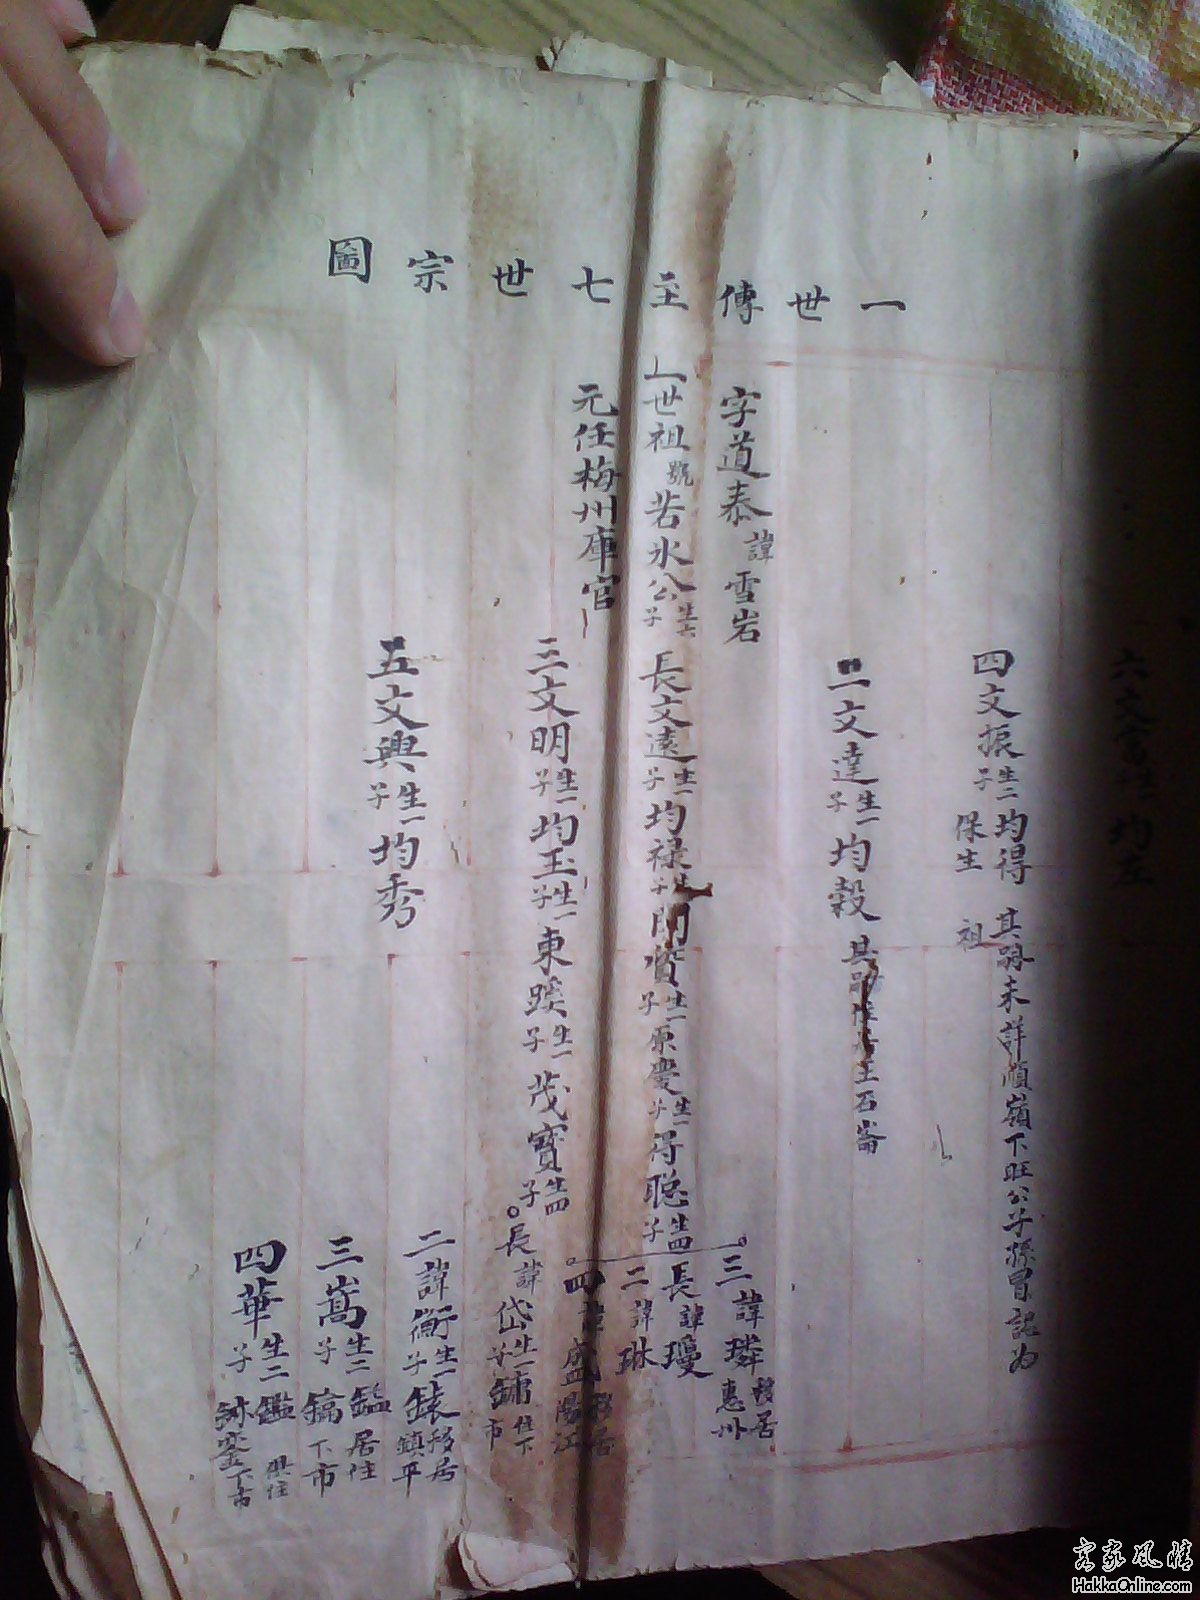 一世傳至七世宗圖
六文富生一均左
四文振生二子均得保生 其嗣未詳順嶺下旺公子孫冒認為祖
二文達生一子均穀 其嗣住居王石崙
字道泰諱雪岩
一世祖號若水公生六子 長文遠生一子均禄生一子開賢生一子原慶生一子得聪生四子
三諱璘移居惠州
長諱瓊
二諱琳
四諱盛移居陽江
元任梅州庫官
三文明生一子均玉生一子東蹊生一子茂寳生四子 長諱岱生一子鏞住下市
二諱衡生一子錶移居鎮平
五文興生一子均秀
三嵩生二子鎰鎬居住下市
四華生二子鑑 俱住下市
客家風情
HakkaOnline.com